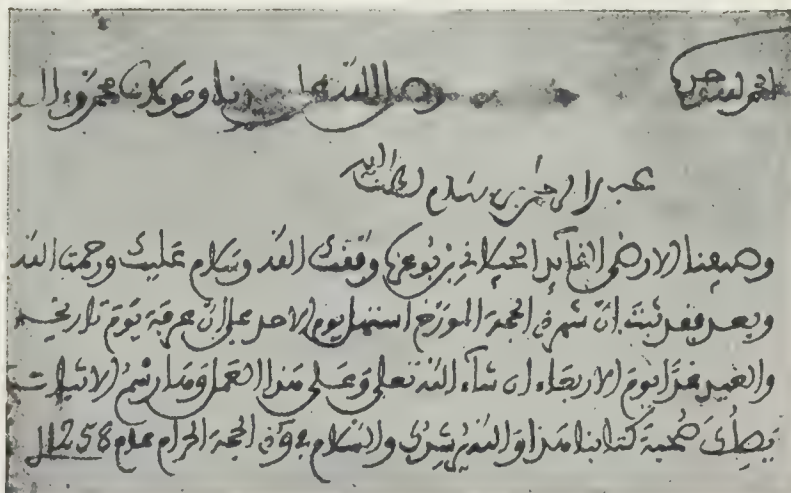 الحمد لله وحده وصلى الله على سيدنا ومولانا محمد وءاله
عبد الرحمن بن هشام
وصيفنا الارضى القائد بن بوعزة وفقك الله وسلام عليك ورحمت الله
وبعد فقد ثبت ان شهر ذي الحجة المورخ استهل يوم الاحد على ان عرفة يوم تاريخه
والعيد غدا يوم الاربعاء ان شاء الله تعلى وعلى هذا العمل وهذا رسم الاثبات
يصلك صحبة كتابنا هذا والله يرشدك والسلام ذي الحجة الحرام عام 1258